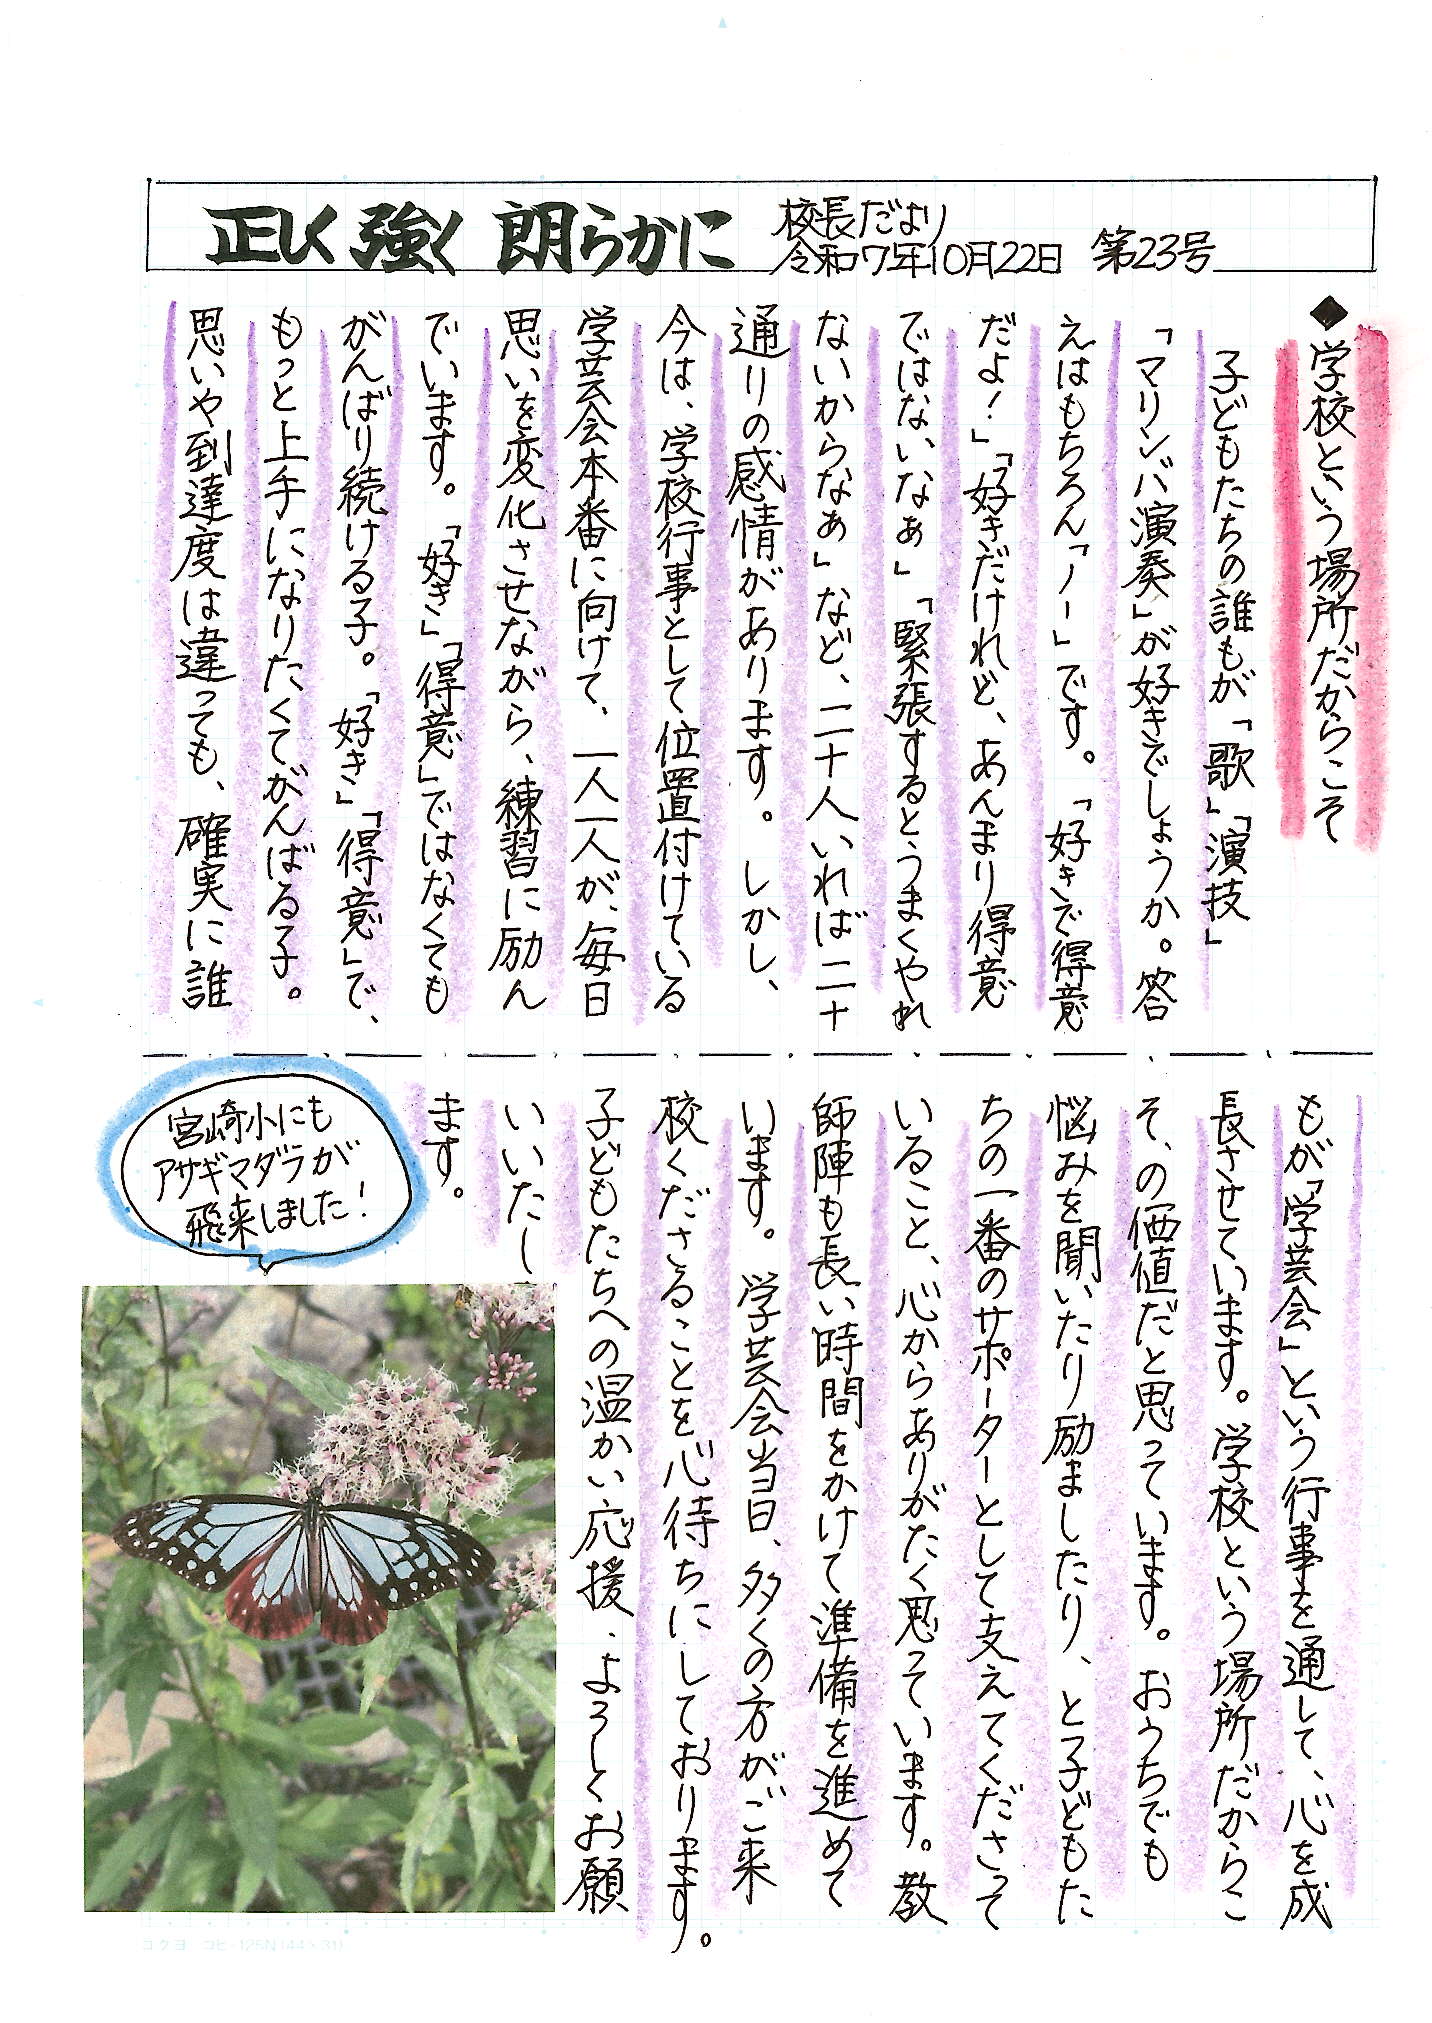 正しく強く朗らかに
校長だより
令和7年10月22日 第23号
◆学校という場所だからこそ
子どもたちの誰もが「歌」「演技」
「マリンバ演奏」が好きでしょうか。答
えはもちろん「ノー」です。「好きで得意
だよ!」「好きだけれど、あんまり得意
ではないなぁ」「緊張するとうまくやれ
ないからなぁ」など、二十人いれば二十
通りの感情があります。しかし、
今は、学校行事として位置付けている
学芸会本番に向けて、一人一人が、毎日
思いを変化させながら、練習に励ん
でいます。「好き」「得意」ではなくても
がんばり続ける子。「好き」「得意」で、
もっと上手になりたくてがんばる子。
思いや到達度は違っても、確実に誰
もが「学芸会」という行事を通して、心を成
長させています。学校という場所だからこ
そ、の価値だと思っています。おうちでも
悩みを聞いたり励ましたり、と子どもた
ちの一番のサポーターとして支えてくださって
いること、心からありがたく思っています。教
師陣も長い時間をかけて準備を進めて
います。学芸会当日、多くの方がご来
校くださることを心待ちにしております。
子どもたちへの温かい応援、よろしくお願
いいたし
ます。
宮崎小にも
アサギマダラが
飛来しました!
コクヨ コヒ-125N(44×31)